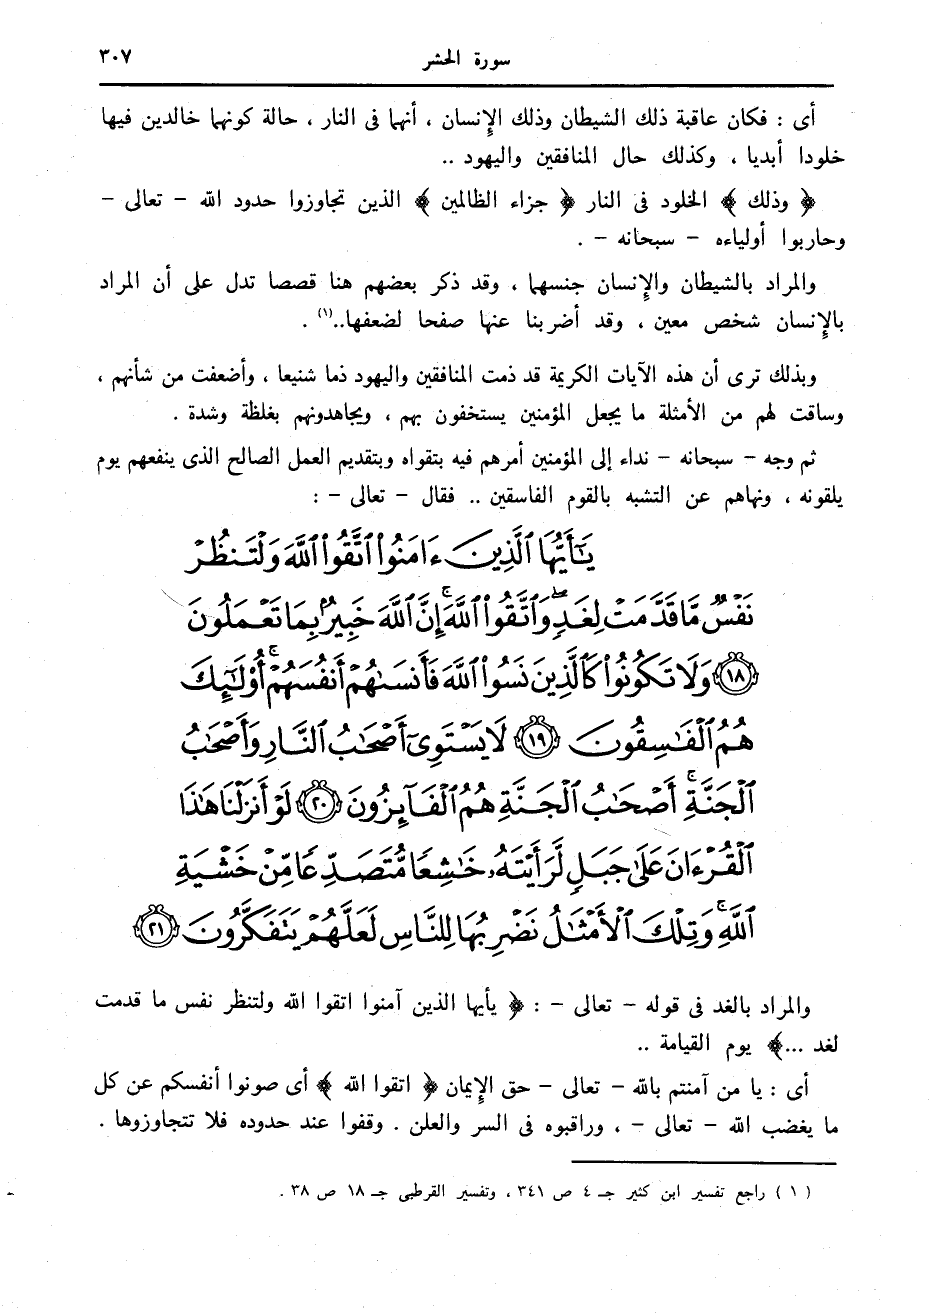 سورة الحشر
٣٠٧
أى : فكان عاقبة ذلك الشيطان وذلك الإنسان ، أنهما فى النار ، حالة كونهما خالدين فيها
خلودا أبديا ، وكذلك حال المنافقين واليهود ..
﴿ وذلك ﴾ الخلود فى النار ﴿ جزاء الظالمين ﴾ الذين تجاوزوا حدود الله - تعالى -
وحاربوا أولياءه - سبحانه - .
والمراد بالشيطان والإنسان جنسهما ، وقد ذكر بعضهم هنا قصصا تدل على أن المراد
بالإنسان شخص معين ، وقد أضربنا عنها صفحا لضعفها..(١) .
وبذلك ترى أن هذه الآيات الكريمة قد ذمت المنافقين واليهود ذما شنيعا ، وأضعفت من شأنهم ،
وساقت لهم من الأمثلة ما يجعل المؤمنين يستخفون بهم ، ويجاهدونهم بغلظة وشدة .
ثم وجه - سبحانه - نداء إلى المؤمنين أمرهم فيه بتقواه وبتقديم العمل الصالح الذى ينفعهم يوم
يلقونه ، ونهاهم عن التشبه بالقوم الفاسقين .. فقال - تعالى - :
يَـٰٓأَيُّهَا ٱلَّذِينَ ءَامَنُواْ ٱتَّقُواْ ٱللَّهَ وَلْتَنظُرْ
نَفْسٌ مَّا قَدَّمَتْ لِغَدٍۖ وَٱتَّقُواْ ٱللَّهَۚ إِنَّ ٱللَّهَ خَبِيرٌۢ بِمَا تَعْمَلُونَ
١٨ وَلَا تَكُونُواْ كَٱلَّذِينَ نَسُواْ ٱللَّهَ فَأَنسَىٰهُمْ أَنفُسَهُمْۚ أُوْلَـٰٓئِكَ
هُمُ ٱلْفَـٰسِقُونَ ١٩ لَا يَسْتَوِىٓ أَصْحَـٰبُ ٱلنَّارِ وَأَصْحَـٰبُ
ٱلْجَنَّةِۚ أَصْحَـٰبُ ٱلْجَنَّةِ هُمُ ٱلْفَآئِزُونَ ٢٠ لَوْ أَنزَلْنَا هَـٰذَا
ٱلْقُرْءَانَ عَلَىٰ جَبَلٍ لَّرَأَيْتَهُۥ خَـٰشِعًا مُّتَصَدِّعًا مِّنْ خَشْيَةِ
ٱللَّهِۚ وَتِلْكَ ٱلْأَمْثَـٰلُ نَضْرِبُهَا لِلنَّاسِ لَعَلَّهُمْ يَتَفَكَّرُونَ ٢١
والمراد بالغد فى قوله - تعالى - : ﴿ يأيها الذين آمنوا اتقوا الله ولتنظر نفس ما قدمت
لغد ...﴾ يوم القيامة ..
أى : يا من آمنتم بالله - تعالى - حق الإيمان ﴿ اتقوا الله ﴾ أى صونوا أنفسكم عن كل
ما يغضب الله - تعالى - ، وراقبوه فى السر والعلن . وقفوا عند حدوده فلا تتجاوزوها .
( ١ ) راجع تفسير ابن كثير جـ ٤ ص ٣٤١ ، وتفسير القرطبى جـ ١٨ ص ٣٨ .